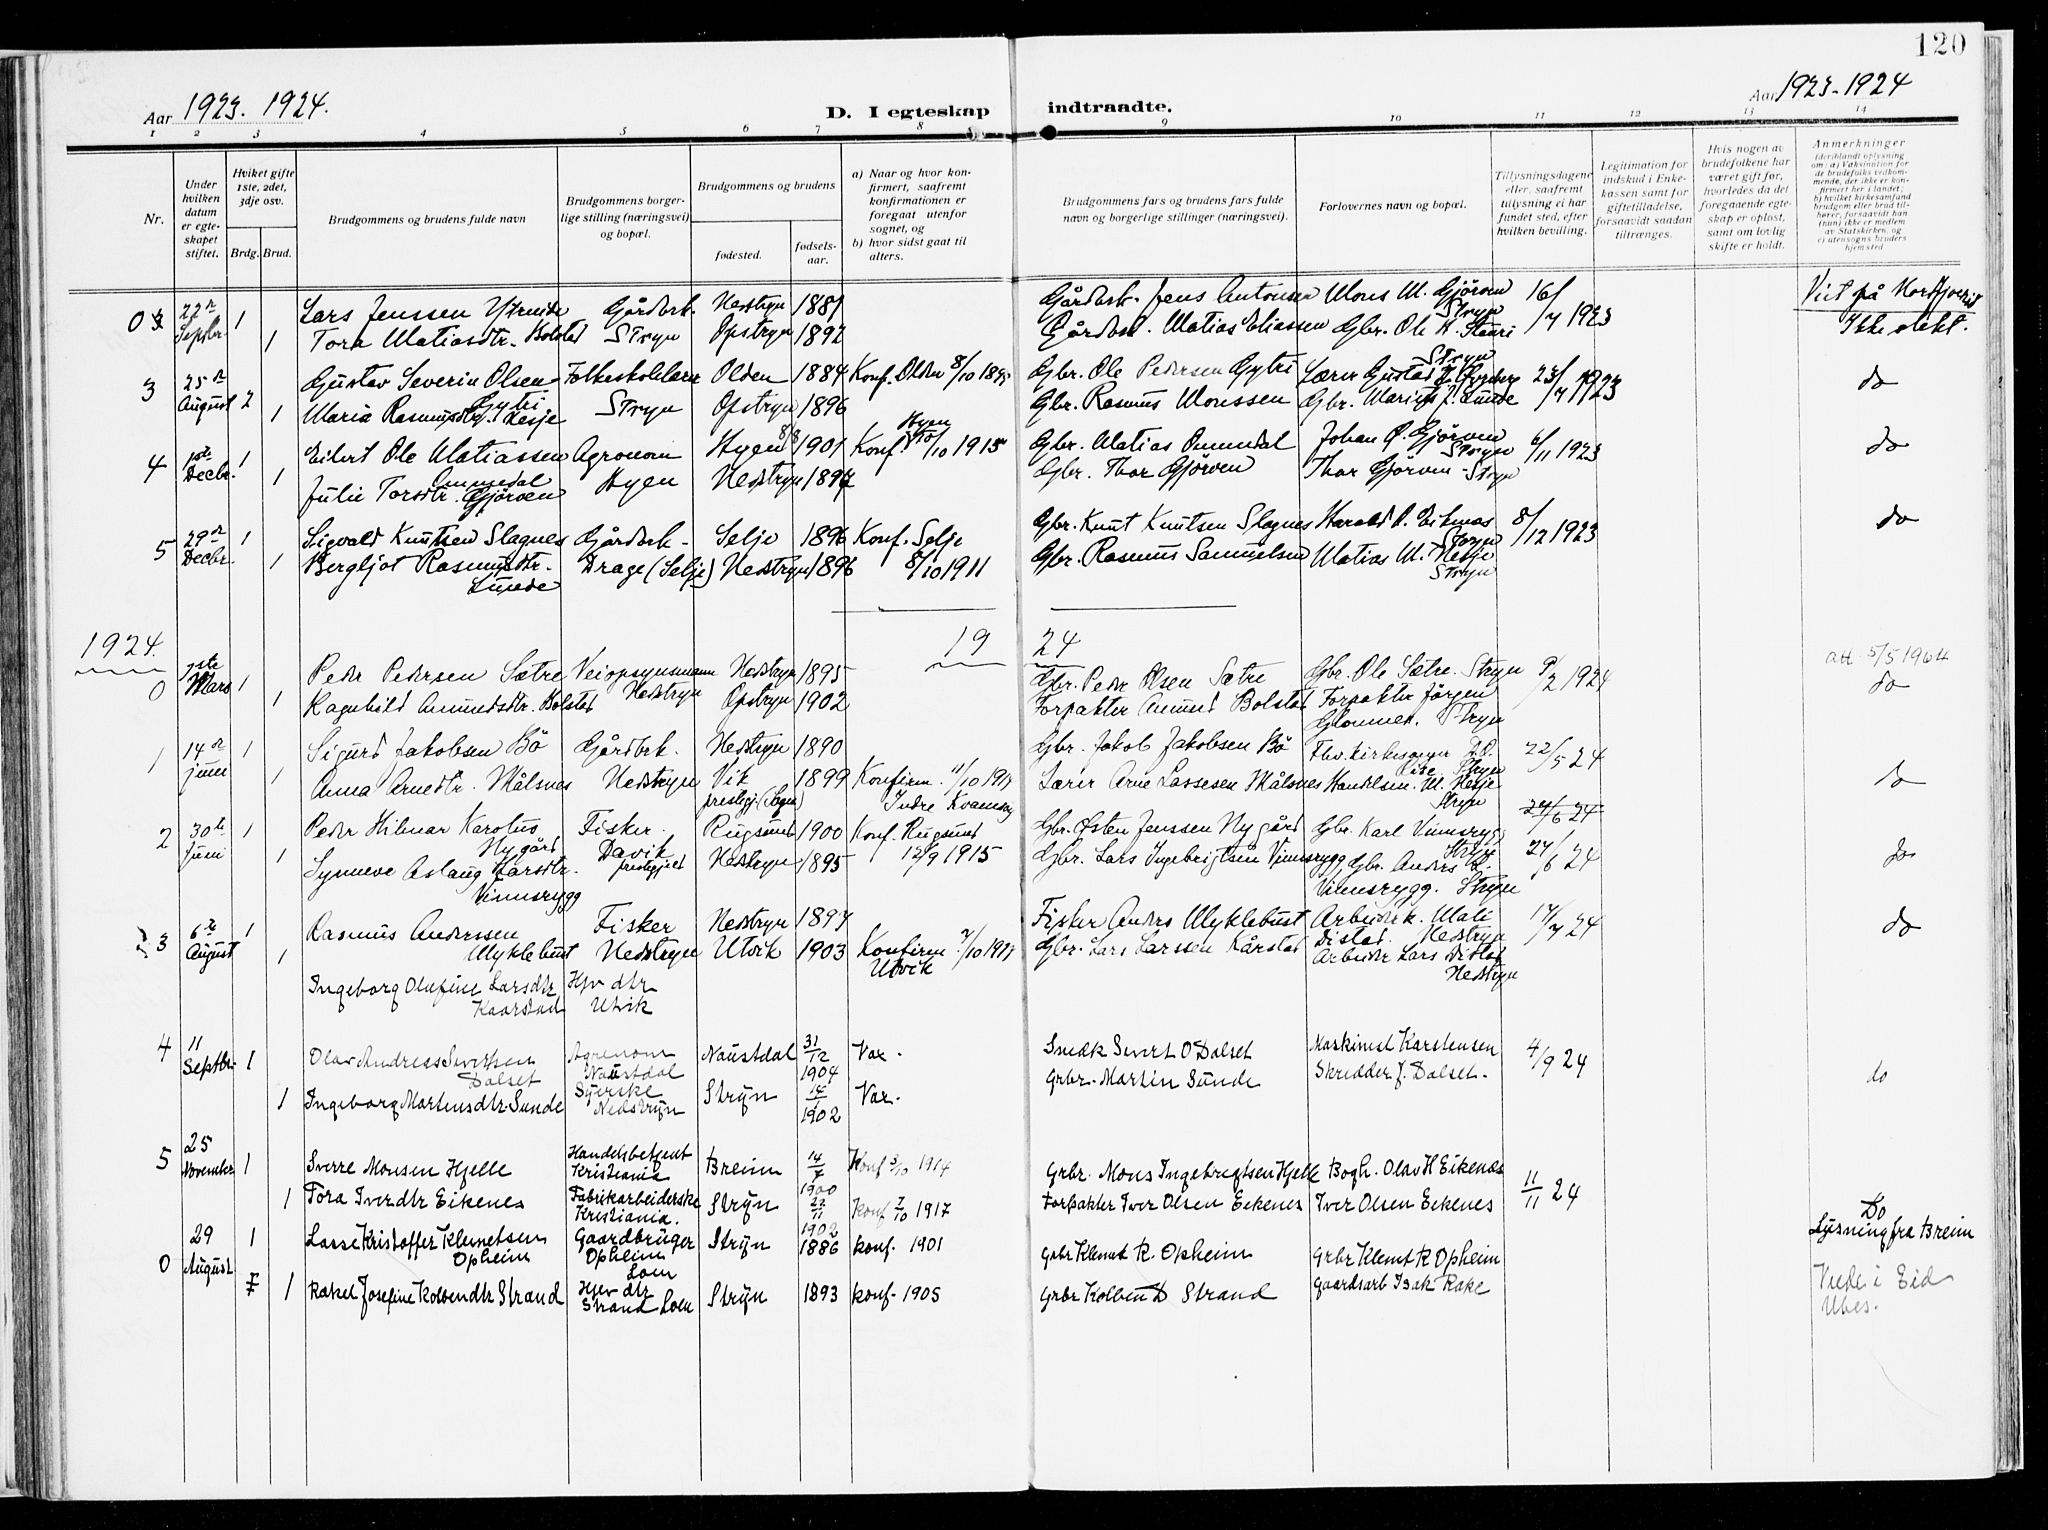 120
Aar 1923. 1924.
D. I egteskap indtraadte.
Aar 1923-1924
1 2 3 4 5 6 7 8 9 10 11 12 13 14
Nr.
Under hvilken datum er egteskapet stiftet.
Hviket gifte 1ste, 2det, 3dje osv.
Brdg. Brud.
Brudgommens og brudens fulde navn
Brudgommens borgerlige stilling (næringsvei) og bopæl.
Brudgommens og brudens
fødested.
fødselsaar.
a) Naar og hvor konfirmert, saafremt konfirmationen er foregaat utenfor sognet, og
b) hvor sidst gaat til alters.
Brudgommens fars og brudens fars fulde navn og borgerlige stillinger (næringsvei).
Forlovernes navn og bopæl.
Tillysningsdagene eller, saafremt tillysning ei har fundet sted, efter hvilken bevilling.
Legitimation for indskud i Enkekassen samt for giftetilladelse, forsaavidt saadan tiltrænges.
Hvis nogen av brudefolkene har været gift før, hvorledes da det foregaaende egteskap er opløst, samt om lovlig skifte er holdt.
Anmerkninger (deriblandt oplysning om: a) Vaksination for de brudefolks vedkommende, der ikke er konfirmert her i landet; b) hvilket kirkesamfund brudgom eller brud tilhører, forsaavidt han (hun) ikke er medlem av Statskirken, og c) utensogns bruders hjemsted
22 Septbr. 1 Lars Jenssen Ytreeide Gårdbrk. Nedstryn 1881 Gårdbrk. Jens Antonsen Mons M. Gjörven Stryn 16/7 1923 Viet på Nordfjoreid
1 Tora Matiasdtr. Bolstad Stryn Opstryn 1892 Gårdbrk. Matias Eliassen Gbr. Ole A. Stauri Ikke slekt.
3 25 August 2 Gustav Severin Olsen Gytri Folkeskolelærer Olden 1884 Konf. Olden 8/10 Gbr. Ole Pedersen Gytri Lærer Gustav Stryn 23/7 1923 do
1 Maria Rasmusdtr. Nesje Stryn Opstryn 1896 Gbr. Rasmus Monssen Gbr. Marius J. Sunde
4 1ste Decbr. 1 Eilert Ole Matiassen Ommedal Agronom Hyen 8/8 1901 Konf. Hyen 10/10 1915 Gbr. Matias Ommedal Johan O. Gjörven Stryn 6/11 1923 do
1 Julie Torsdtr. Gjörven Hyen Nedstryn 1897 Gbr. Thor Gjörven Thor Gjörven - Stryn
5 29 Decbr. 1 Sigvald Knutsen Slagnes Gårdbrk. Selje 1896 Konf. Selje 8/10 1911 Gbr. Knut Knutsen Slagnes Harald A. Eiknæs Stryn 8/12 1923 do
1 Bergljot Rasmusdtr. Sunde Drage (Selje) Nedstryn 1896 Gbr. Rasmus Samuelsen Matias M. Nesje Stryn
1924. 19 24
att 5/5 1964
0 1ste Mars 1 Peder Pedersen Sætre Veiopsynsmann Nedstryn Nedstryn 1895 Gbr. Peder Olsen Sætre Gbr. Ole Sætre. Stryn 9/2 1924 do
1 Ragnhild Amundsdtr. Bolstad Opstryn 1902 Forpakter Amund Bolstad Forpakter Jörgen Glommen. Stryn
1 14 juni 1 Sigurd Jakobsen Bö Gårdbrk. Nedstryn 1890 Gbr. Jakob Jakobsen Bö Fhv. Kirkesanger Stryn 22/5 24 do
1 Anna Arnedtr. Målsnes Nedstryn Vik prestegj (Sogn) 1899 Konfirm. 11/10 Indre Lærer Arne Lassesen Målsnes Handelsm. M. Nesje Stryn
2 30te Juni 1 Peder Hilmar Karolus Nygård Fisker. Davik prestegjeld Rugsund 1900 Konf. Rugsund 12/9 1915 Gbr. Østen Jenssen Nygård Gbr. Karl Vinnsrygg Stryn 24/6 24 27/6 24 do
1 Synneve Aslaug Larsdtr. Vinnsrygg Nedstryn 1895 Gbr. Lars Ingebrigtsen Vinnsrygg Gbr. Anders L. Vinnsrygg. Stryn
3 6te August 1 Rasmus Anderssen Myklebust Fisker Nedstryn Nedstryn 1897 Fisker Anders Myklebust Arbeiderk. Mali Distad. Nedstryn 17/7 24 do
1 Utvik 1903 Konfirm. 7/10 Utvik Gbr. Lars Larssen Kårstad Arbeider Lars Distad Nedstryn
Ingeborg Olufine Larsdtr Kaarstad Hjv dtr Utvik
4 11 Septbr. 1 Olav Andreas Sivertsen Dalset Agronom Naustdal Naustdal 31/12 1904 Vax. Snedk Sivert O Dalset Maskinist Karstensen 4/9 24 do
1 Ingeborg Martensdtr. Sunde Syerske Nedstryn Stryn 14/1 1902 Vax. Grbr. Martin Sunde Skredder J. Dalset.
5 25 November 1 Sverre Monsen Hjelle Handelsbetjent Kristiania Breim 14/7 1900 Konf 3/10 1914 Grbr. Mons Ingebrigtsen Hjelle Bogh. Olav H Eikenæs 11/11 24
1 Tora Iverdtr Eikenes Fabrikarbeiderske Kristiania. Stryn 22/11 1902 Konf 7/10 1917 Forpakter Iver Olsen Eikenes Iver Olsen Eikenes Do Lysning fra Breim
0 29 August 1 Lasse Kristoffer Klemetsen Opheim Gaardbruger Opheim Loen Stryn 1886 konf. 1901 Grbr Klemet R. Opheim Grbr Klemt R Opheim
1 Rakel Josefine Kolbendtr Strand Hjv dtr Strand Loen Stryn 1893 konf. 1905 Grbr Kolben D Strand Gaardsarb Isak Rake Viede i Eid